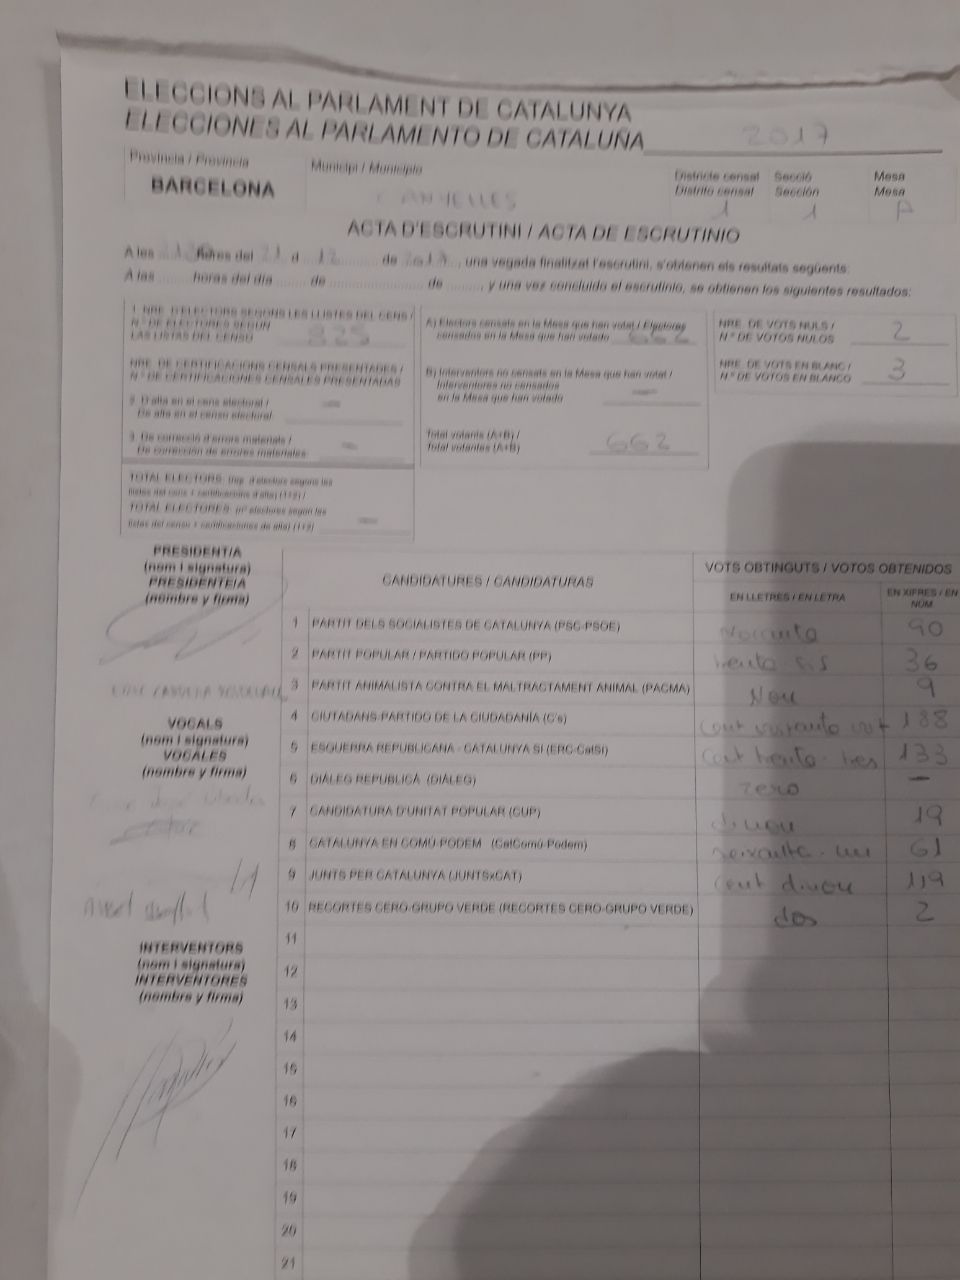 ELECCIONS AL PARLAMENT DE CATALUNYA
ELECCIONES AL PARLAMENTO DE CATALUÑA 2017
Provincia / Provincia Municipi / Municipio Districte censal Secció Mesa
Distrito censal Sección Mesa
BARCELONA CANYELLES 1 1 A
ACTA D'ESCRUTINI / ACTA DE ESCRUTINIO
A les hores del 21 d 12 de 2017, una vegada finalitzat l'escrutini, s'obtenen els resultats següents:
A las horas del día de de , y una vez concluido el escrutinio, se obtienen los siguientes resultados:
1. NRE. D'ELECTORS SEGONS LES LLISTES DEL CENS /
N.º DE ELECTORES SEGÚN
LAS LISTAS DEL CENSO 825
NRE. DE CERTIFICACIONS CENSALS PRESENTADES /
N.º DE CERTIFICACIONES CENSALES PRESENTADAS
2. D'alta en el cens electoral / —
De alta en el censo electoral
3. De correcció d'errors materials / —
De corrección de errores materiales
TOTAL ELECTORS: (nre. d'electors segons les
llistes del cens + certificacions d'alta) (1+2) /
TOTAL ELECTORES: (nº electores según las
listas del censo + certificaciones de alta) (1+2) —
A) Electors censats en la Mesa que han votat / Electores
censados en la Mesa que han votado 662
B) Interventors no censats en la Mesa que han votat /
Interventores no censados
en la Mesa que han votado —
Total votants (A+B) /
Total votantes (A+B) 662
NRE. DE VOTS NULS /
N.º DE VOTOS NULOS 2
NRE. DE VOTS EN BLANC /
N.º DE VOTOS EN BLANCO 3
PRESIDENT/A
(nom i signatura)
PRESIDENTE/A
(nombre y firma)
VOCALS
(nom i signatura)
VOCALES
(nombre y firma)
Albert
INTERVENTORS
(nom i signatura)
INTERVENTORES
(nombre y firma)
CANDIDATURES / CANDIDATURAS VOTS OBTINGUTS / VOTOS OBTENIDOS
EN LLETRES / EN LETRA EN XIFRES / EN NÚM.
1 PARTIT DELS SOCIALISTES DE CATALUNYA (PSC-PSOE) Noranta 90
2 PARTIT POPULAR / PARTIDO POPULAR (PP) trenta sis 36
3 PARTIT ANIMALISTA CONTRA EL MALTRACTAMENT ANIMAL (PACMA) Nou 9
4 CIUTADANS-PARTIDO DE LA CIUDADANÍA (C's) cent vuitanta vuit 188
5 ESQUERRA REPUBLICANA - CATALUNYA SÍ (ERC-CatSí) cent trenta-tres 133
6 DIÀLEG REPUBLICÀ (DIÀLEG) zero —
7 CANDIDATURA D'UNITAT POPULAR (CUP) dinou 19
8 CATALUNYA EN COMÚ-PODEM (CatComú-Podem) seixanta-un 61
9 JUNTS PER CATALUNYA (JUNTSxCAT) cent dinou 119
10 RECORTES CERO-GRUPO VERDE (RECORTES CERO-GRUPO VERDE) dos 2
11
12
13
14
15
16
17
18
19
20
21